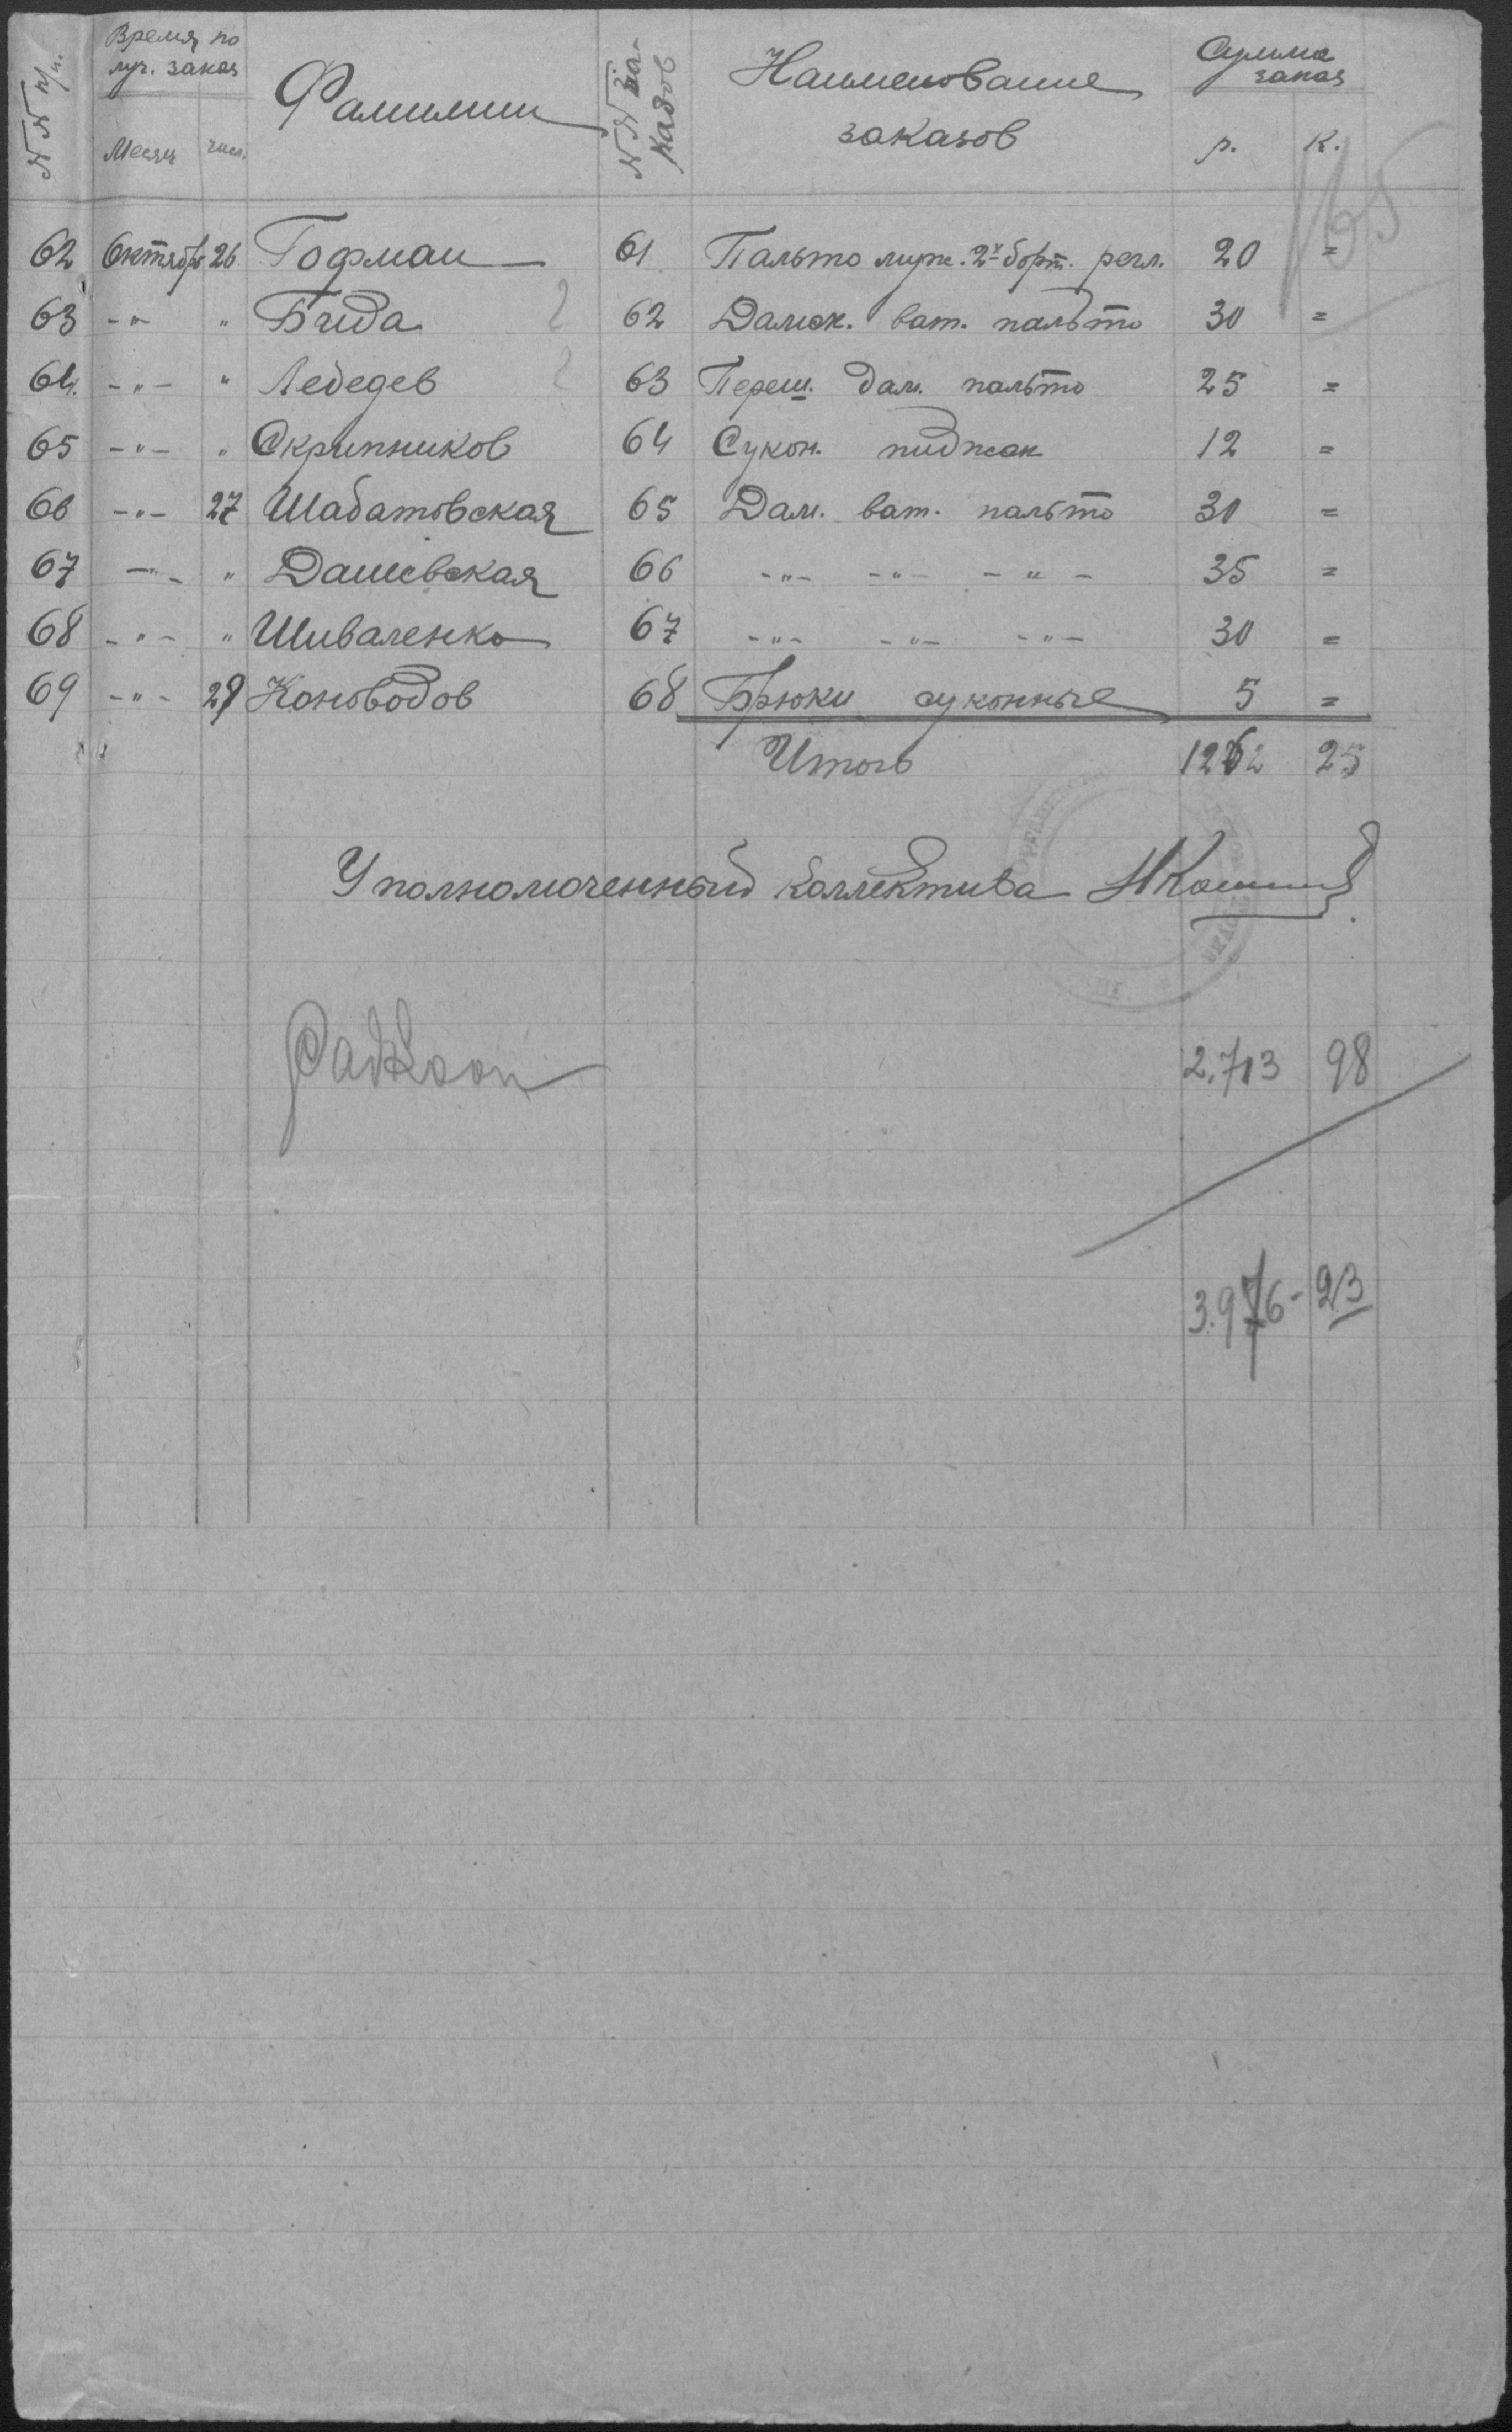 №№ п/п.
Время по
луч. заказ
Месяц числ.
Фамилии
№№ за-
казов
Наименование
заказов
Сумма
заказ
р. к.
165
62 Октябрь 26 Гофман — 61 Пальто муж. 2х борт. регл. 20 =
63 -"- " Бида 62 Дамск. ват. пальто 30 =
64. -"- " Лебедев 63 Переш. дам. пальто 25 =
65 -"- " Скрипников 64 Сукон. пиджак 12 =
66 -"- 27 Шабатовская 65 Дам. ват. пальто 30 =
67 -"- " Дашевская 66 -"- -"- -"- 35 =
68 -"- " Шиваленко 67 -"- -"- -"- 30 =
69 -"- 28 Коноводов 68 Брюки суконные 5 =
Итого 1262 25
Уполномоченный коллектива
2.713 98
3.976 - 23